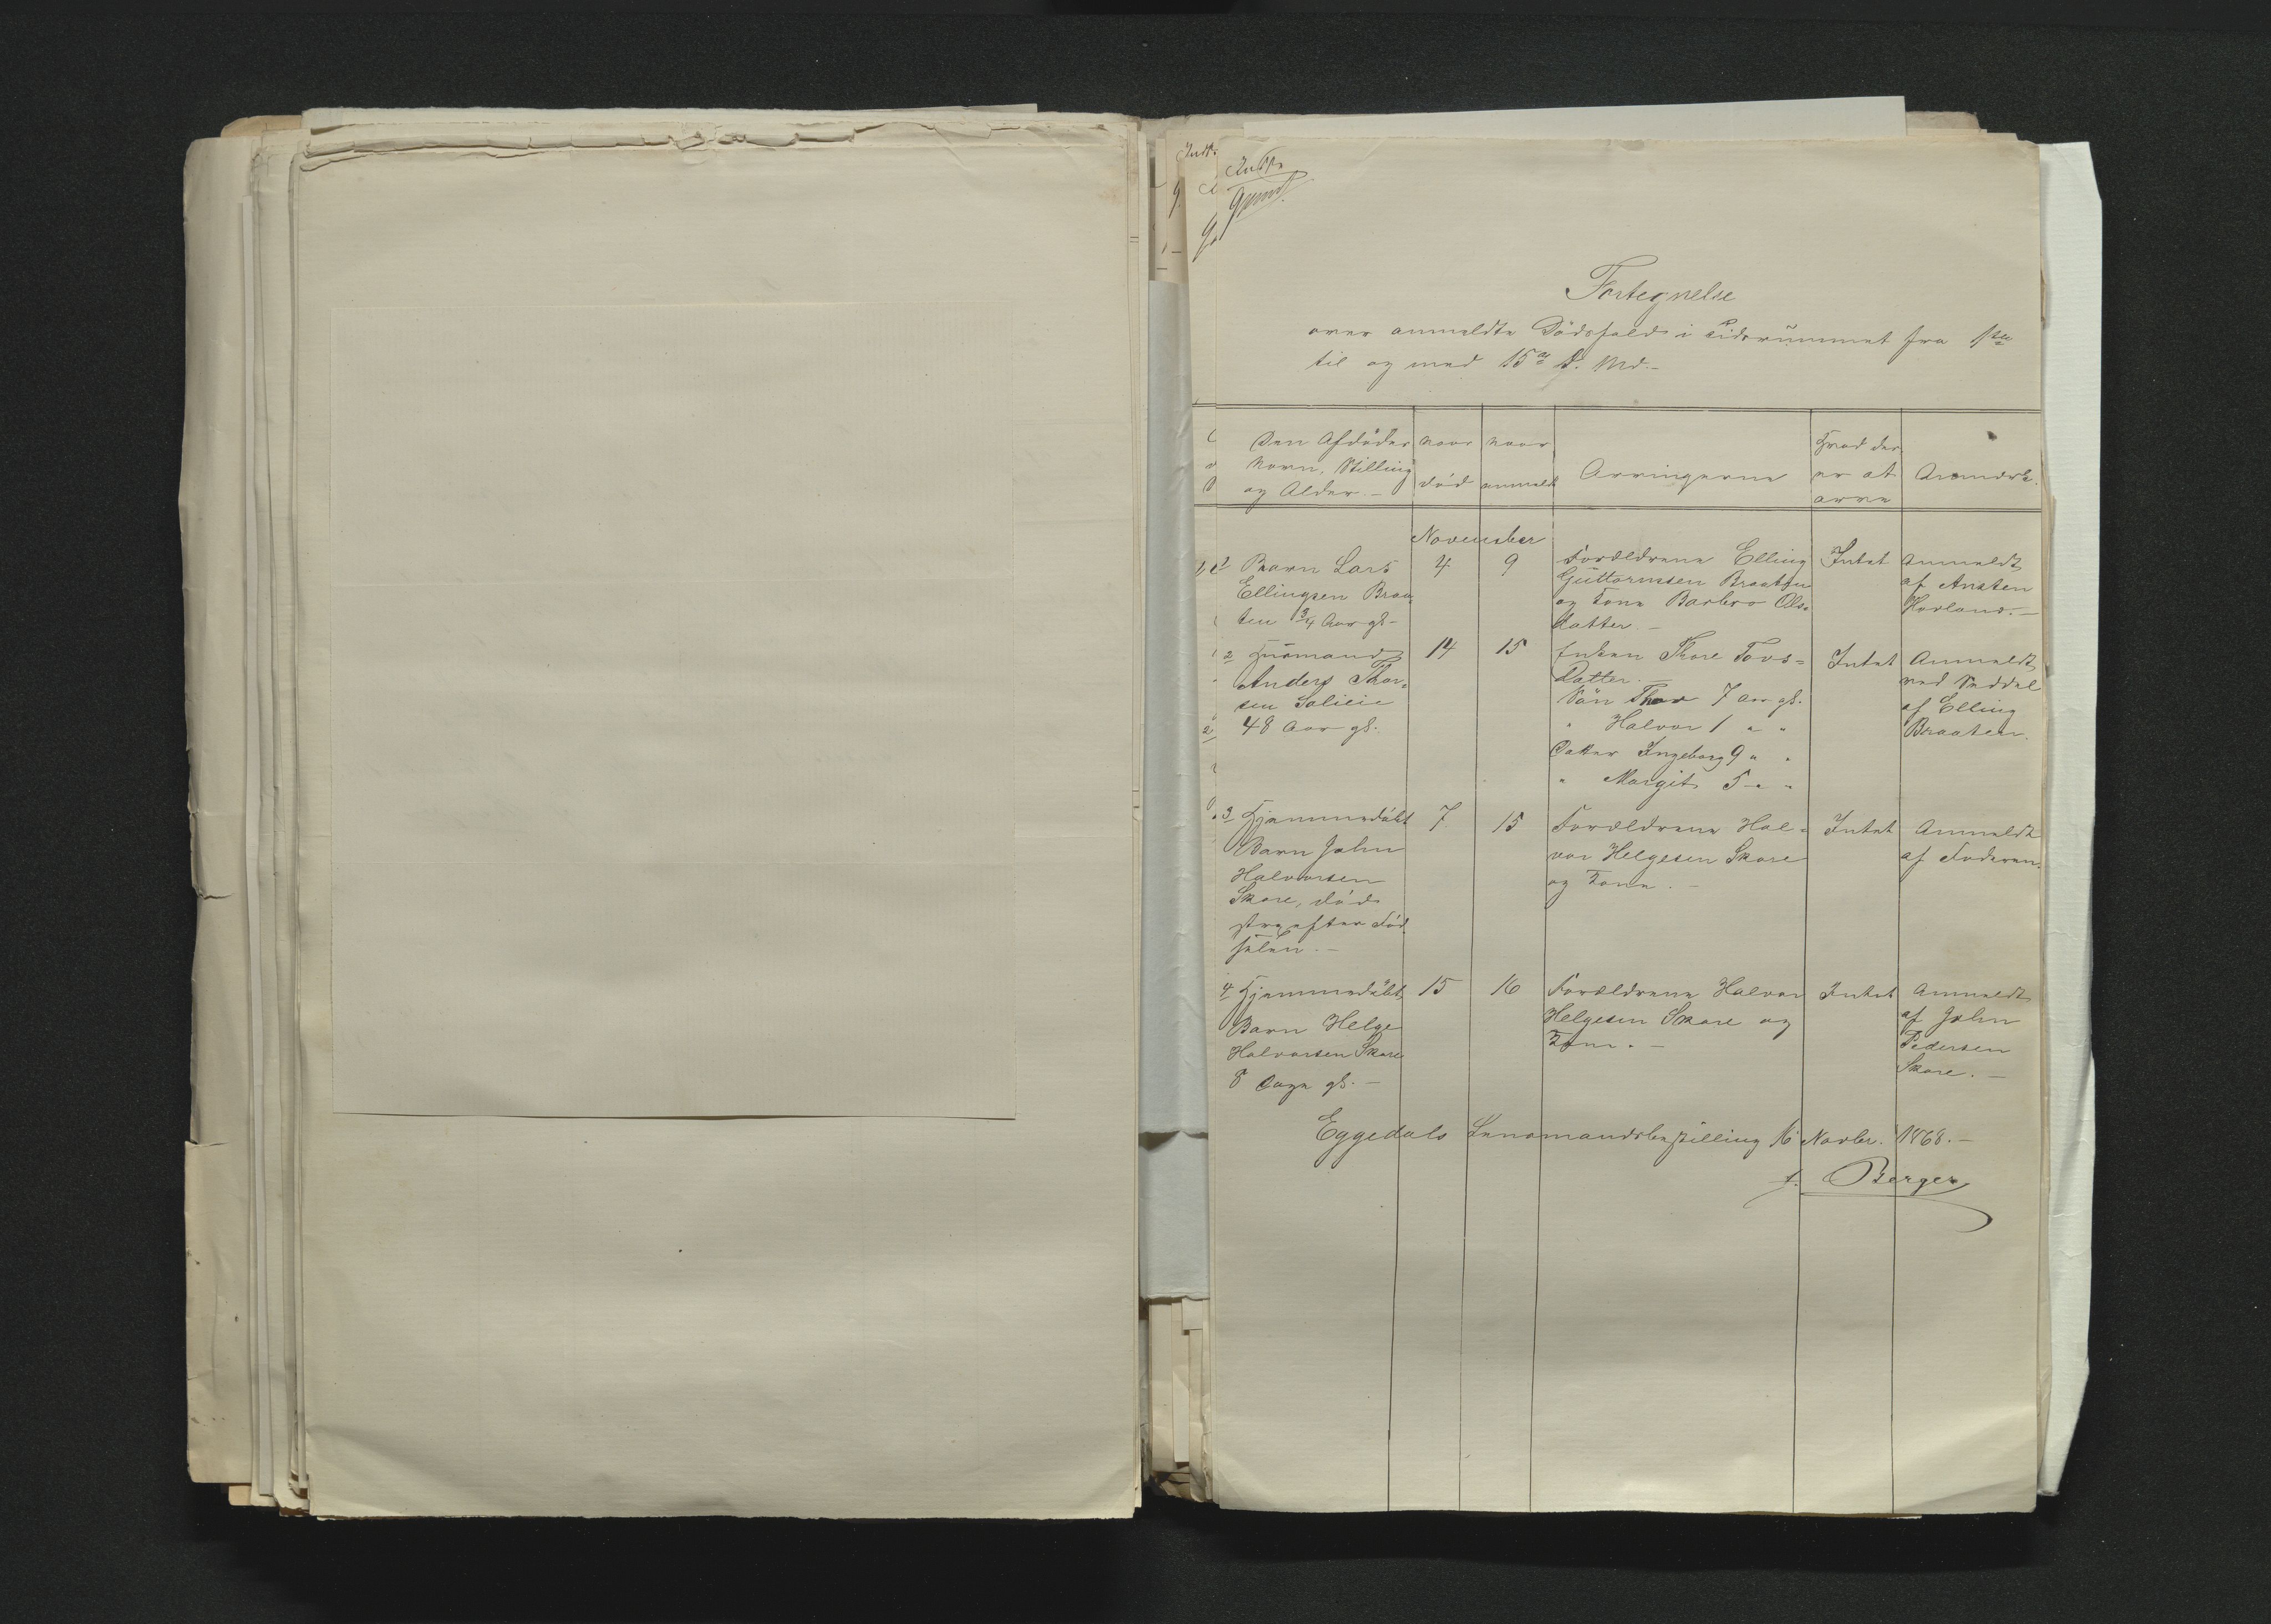 Fortegnelse
over anmeldte Dödsfald i Tidsrummet fra 1ste
til og med 15de d. Md.-
Den Afdödes Navn, Stilling og Alder. -
naar död
naar anmeldt
Arvingerne
Hvad der er at arve
Anmærk.
November
1 Barn Lars
Ellingsen Braa-
ten 3/4 Aar gl-
4
9
Forældrene Elling
Guttormsen Braaten
og Kone Barbro Ols-
datter. -
Intet
Anmeldt
af Ansten
Hovland. -
2 Huusmand
Anders Thor-
sen
48 Aar gl.
14
15
Enken Thore Tovs-
Datter. -
Sön Thor 7 Aar gl.
" Halvor 1 " "
Datter Ingeborg 9 " "
" Margit 5 " "
Intet
Anmeldt
ved Seddel
af Elling
Braaten.
3 Hjemmedöbt
Barn John
Halvorsen
Skare, död
strax efter Föd-
selen. -
7
15
Forældrene Hal-
vor Helgesen Skare
og Kone. -
Intet
Anmeldt
af Faderen.
4 Hjemmedöbt
Barn Helge
Halvorsen Skare
8 Dage gl. -
15
16
Forældrene Halvor
Helgesen Skare og
Kone. -
Intet
Anmeldt
af John
Pedersen
Skare. -
Eggedals Lensmandsbestilling 16 Novbr. 1868. -
Berger